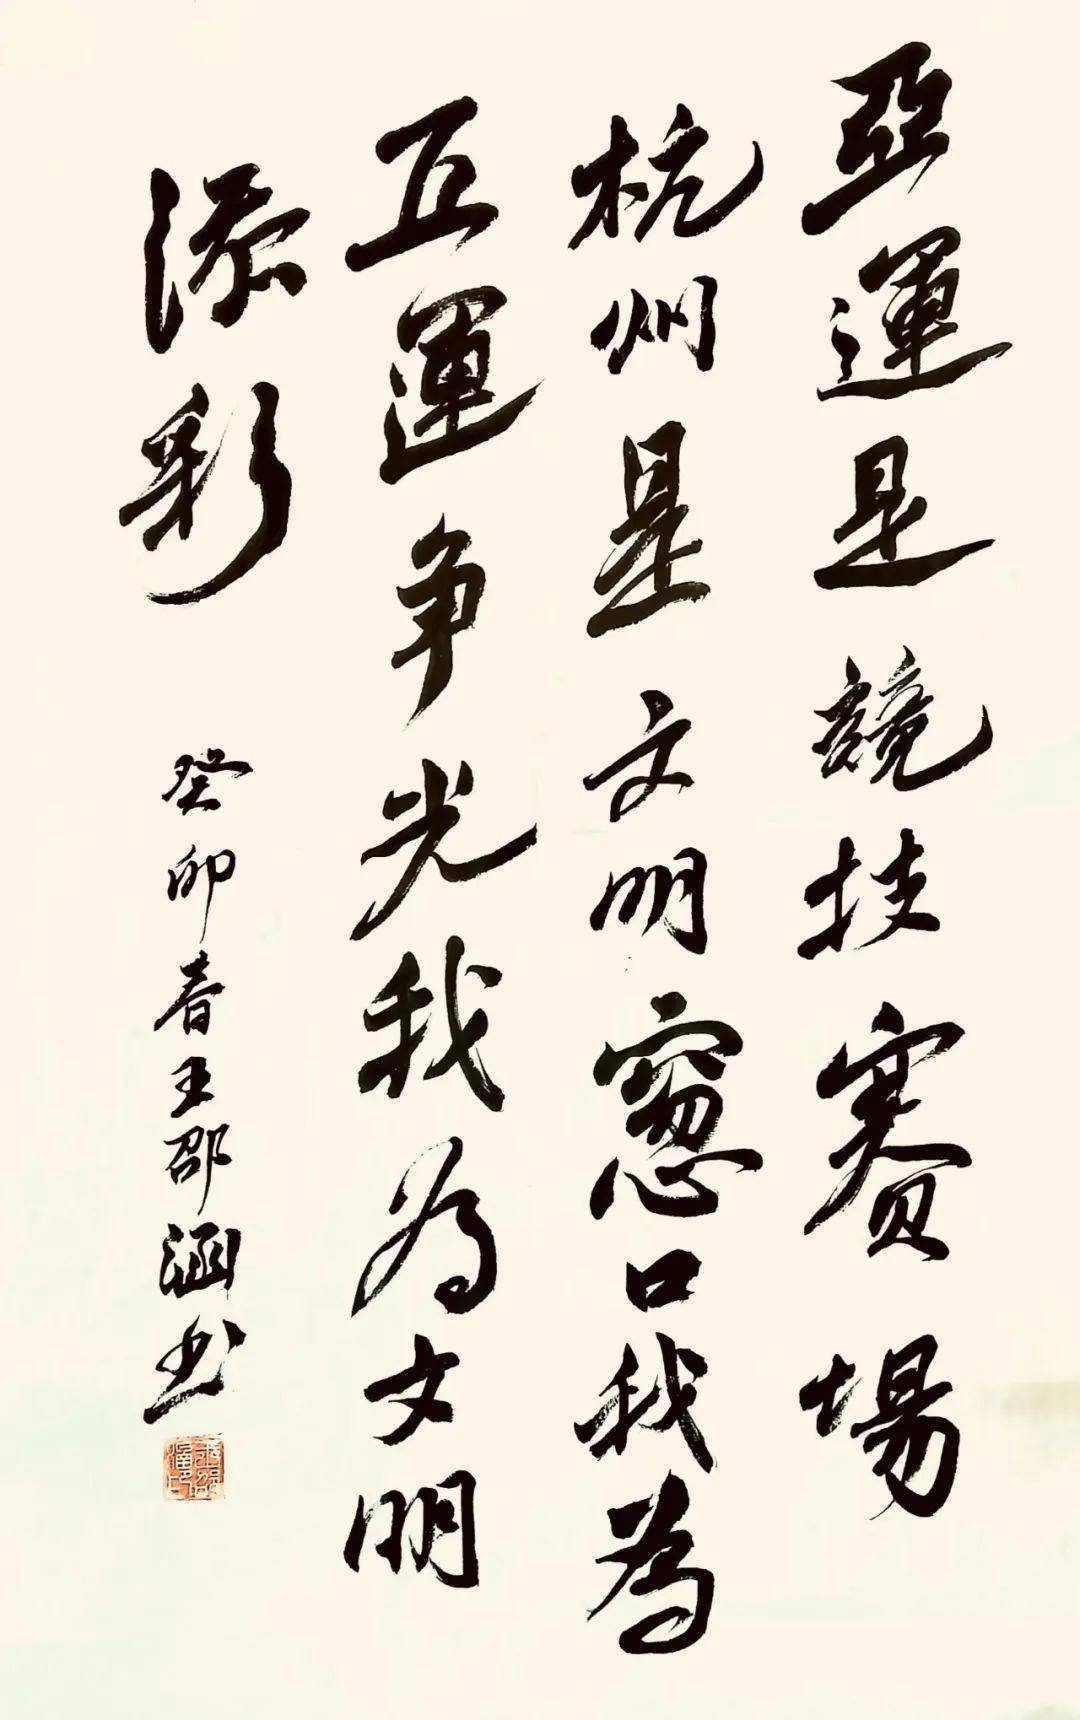 亞運是競技賽場
杭州是文明窓口我為
亞運争光我为文明
添彩
癸卯春王邵涵书